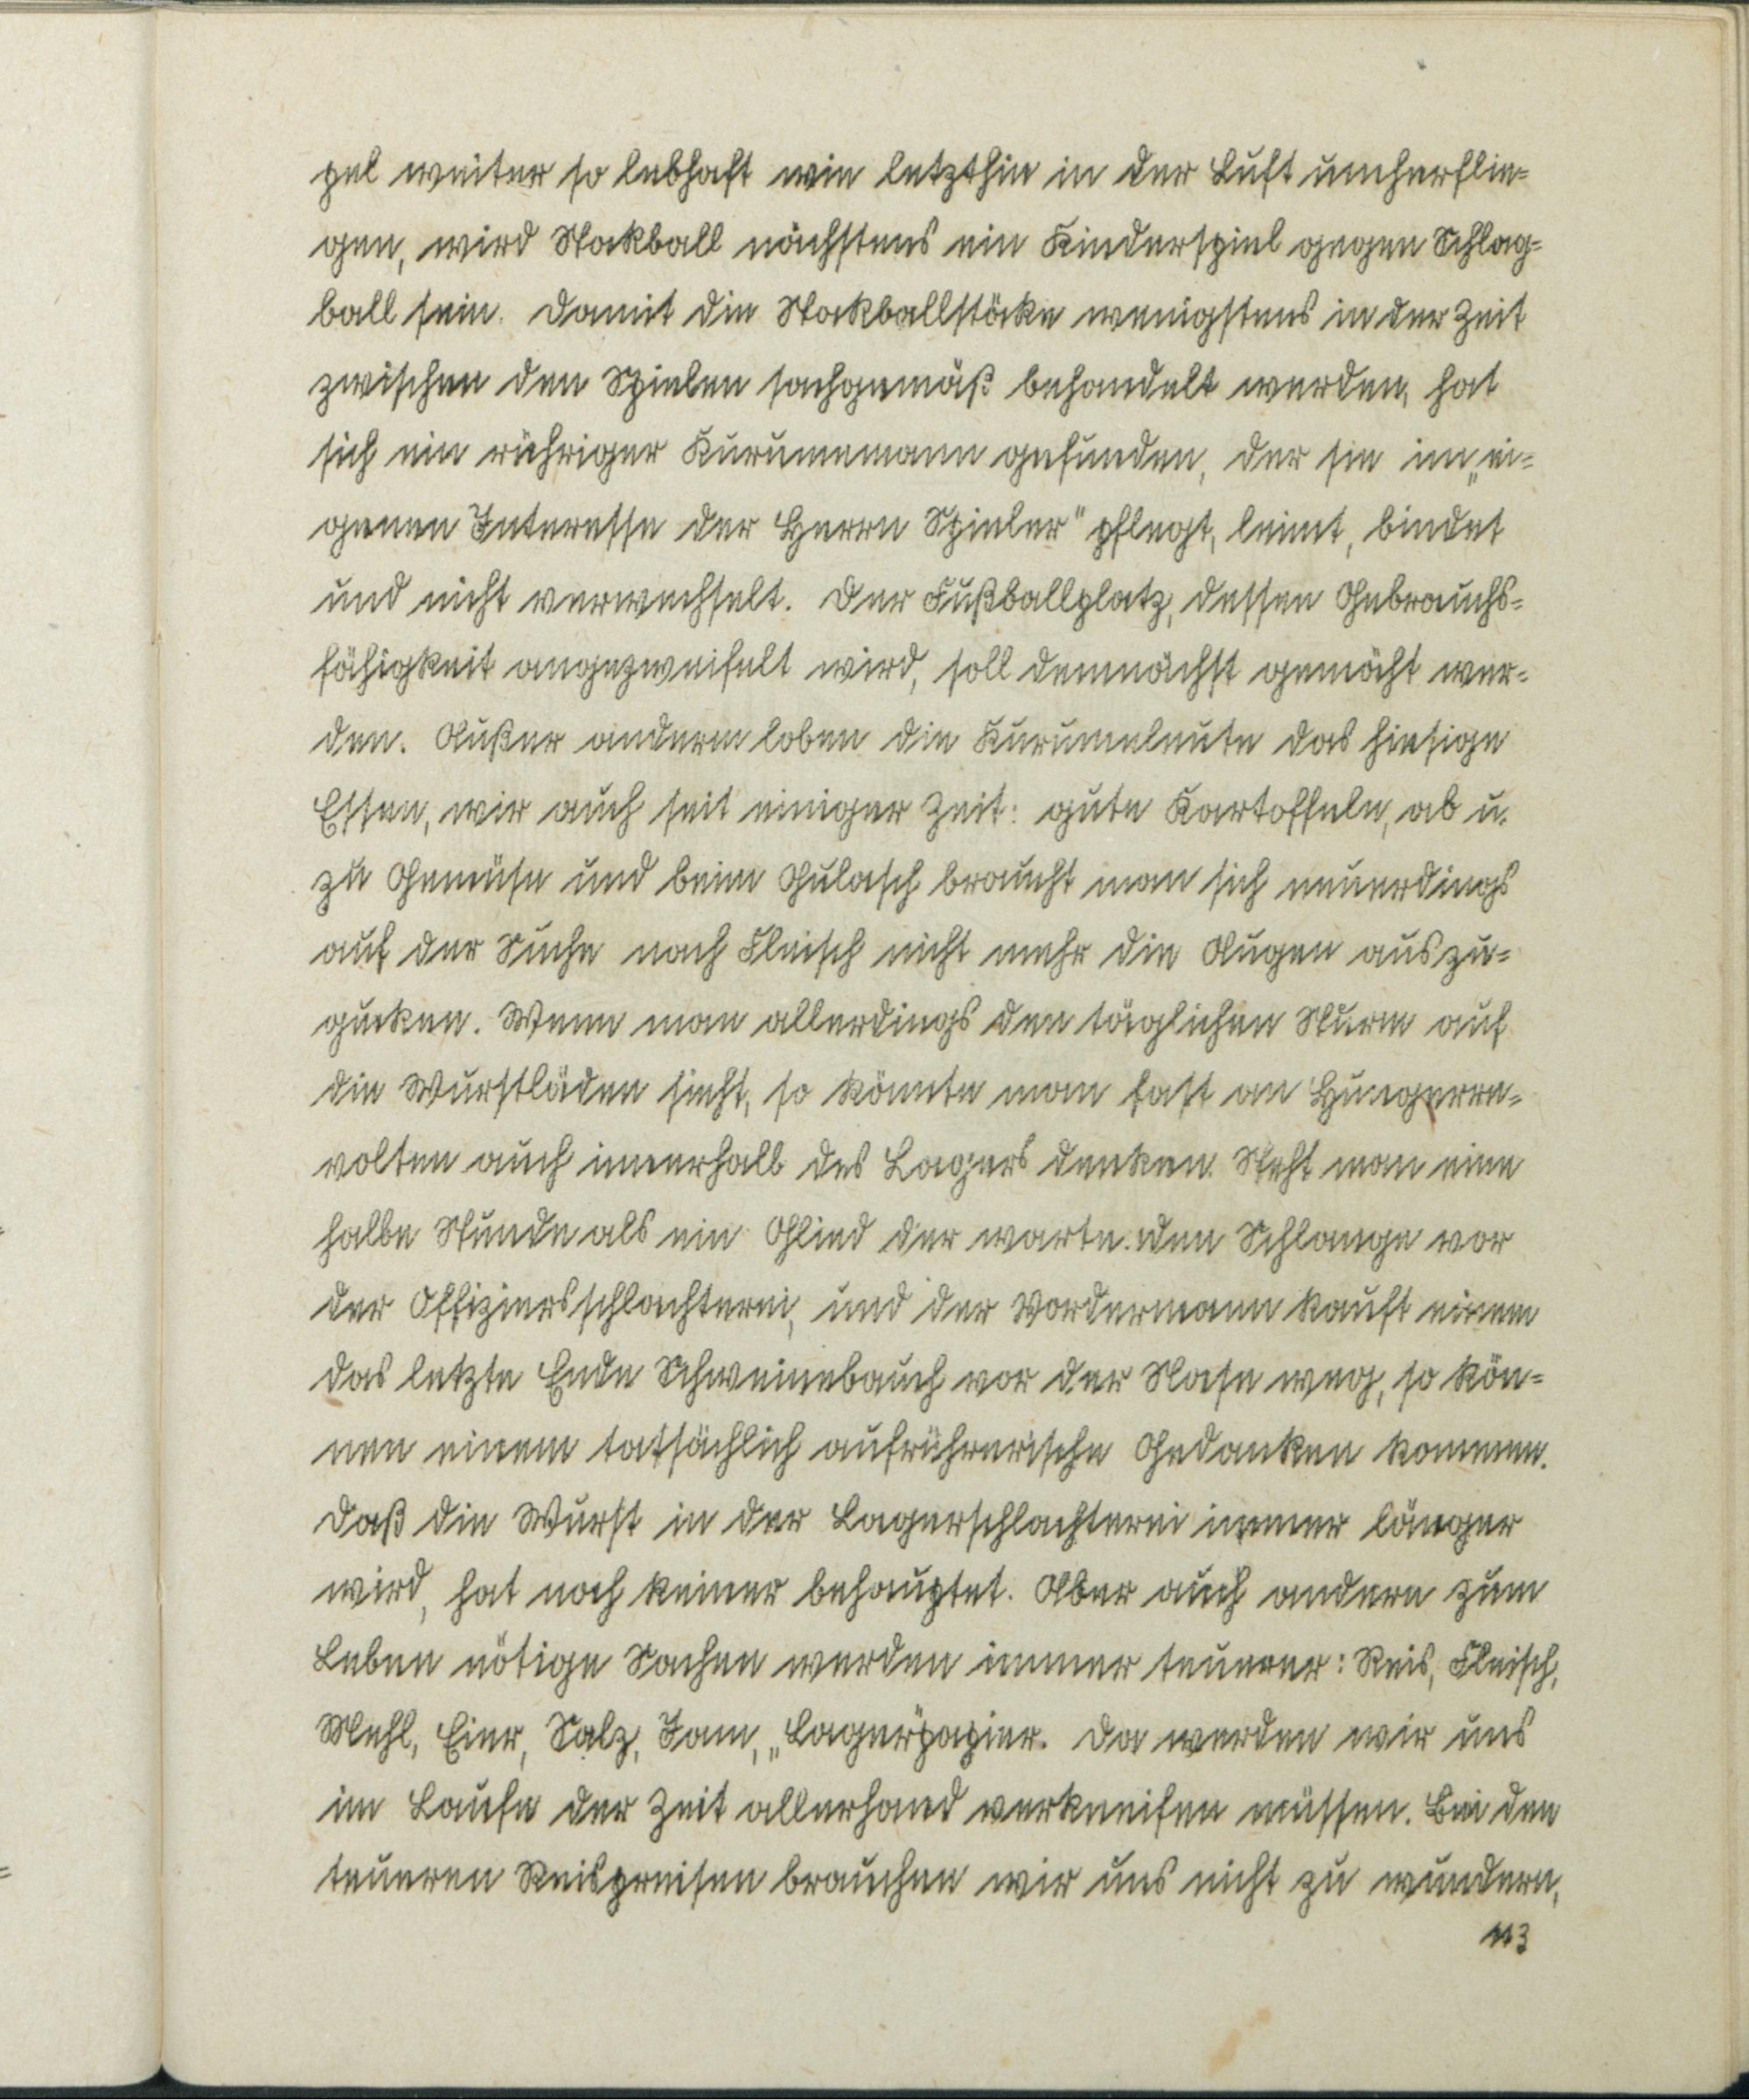 pel weiter so lebhaft wie letzthin in der Luft umherflie=
gen, wird Stockball nächstens ein Kinderspiel gegen Schlag=
ball sein. Damit die Stockballstöcke wenigstens in der Zeit
zwischen den Spielen sachgemäß behandelt werden, hat
sich ein rühriger Kurumemann gefunden, der sie im „ei=
genen Interesse der Herrn Spieler" pflegt, leimt, bindet
und nicht verwechselt. Der Fußballplatz, dessen Gebrauchs=
fähigkeit angezweifelt wird, soll demnächst gemäht wer=
den. Außer anderm loben die Kurumeleute das hiesige
Essen, wir auch seit einiger Zeit: gute Kartoffeln, ab u.
zu Gemüse und beim Gulasch braucht man sich neuerdings
auf der Suche nach Fleisch nicht mehr die Augen auszu=
gucken. Wenn man allerdings den täglichen Sturm auf
die Wurstläden sieht, so könnte man fast an Hungerre=
volten auch innerhalb des Lagers denken. Steht man eine
halbe Stunde als ein Glied der wartenden Schlange vor
der Offiziersschlachterei, und der Vordermann kauft einem
das letzte Ende Schweinebauch vor der Nase weg, so kön=
nen einem tatsächlich aufrührerische Gedanken kommen.
Daß die Wurst in der Lagerschlachterei immer länger
wird, hat noch keiner behauptet. Aber auch andere zum
Leben nötige Sachen werden immer teuerer: Reis, Fleisch,
Mehl, Eier, Salz, Jam, „Lager"papier. Da werden wir uns
im Laufe der Zeit allerhand verkneifen müssen. Bei den
teueren Reispreisen brauchen wir uns nicht zu wundern,
113